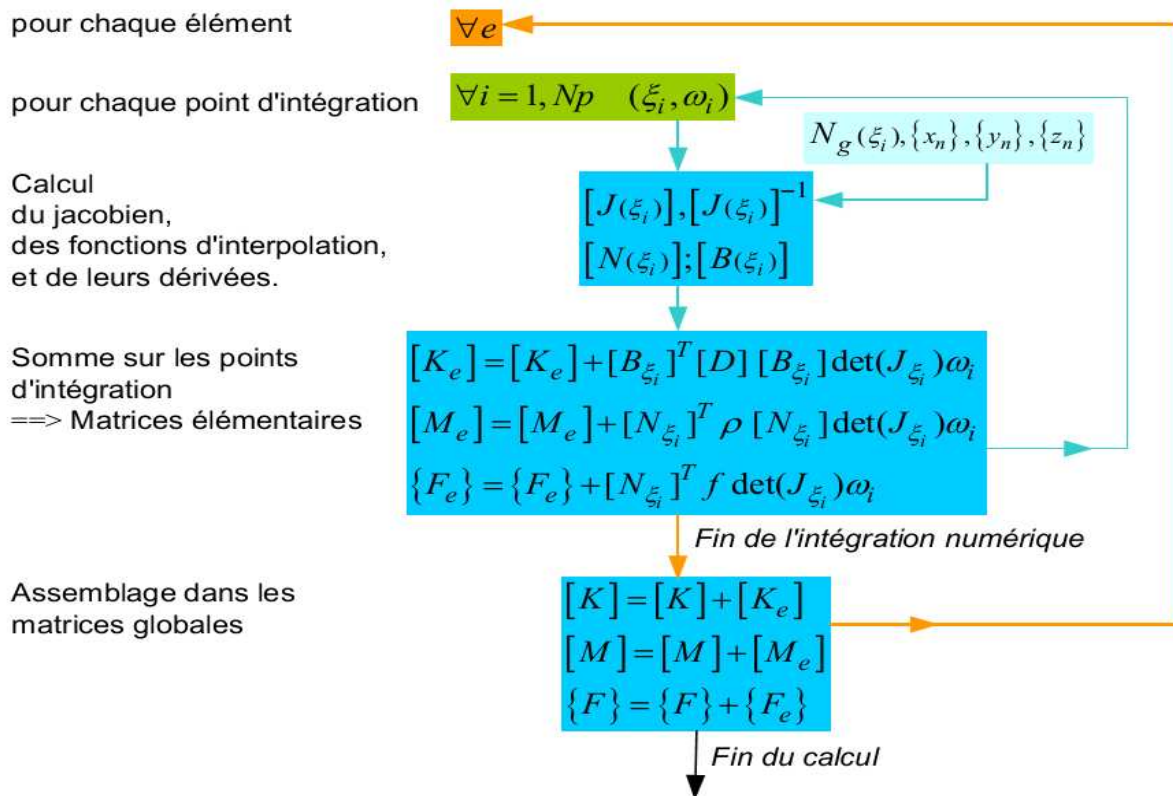 pour chaque élément
∀e
pour chaque point d'intégration
∀i = 1, Np (ξ_i, ω_i)
N_g(ξ_i), {x_n}, {y_n}, {z_n}
Calcul
du jacobien,
des fonctions d'interpolation,
et de leurs dérivées.
[J(ξ_i)], [J(ξ_i)]^{-1}
[N(ξ_i)]; [B(ξ_i)]
Somme sur les points
d'intégration
==> Matrices élémentaires
[K_e] = [K_e] + [B_{ξ_i}]^T [D] [B_{ξ_i}] det(J_{ξ_i}) ω_i
[M_e] = [M_e] + [N_{ξ_i}]^T ρ [N_{ξ_i}] det(J_{ξ_i}) ω_i
{F_e} = {F_e} + [N_{ξ_i}]^T f det(J_{ξ_i}) ω_i
Fin de l'intégration numérique
Assemblage dans les
matrices globales
[K] = [K] + [K_e]
[M] = [M] + [M_e]
{F} = {F} + {F_e}
Fin du calcul